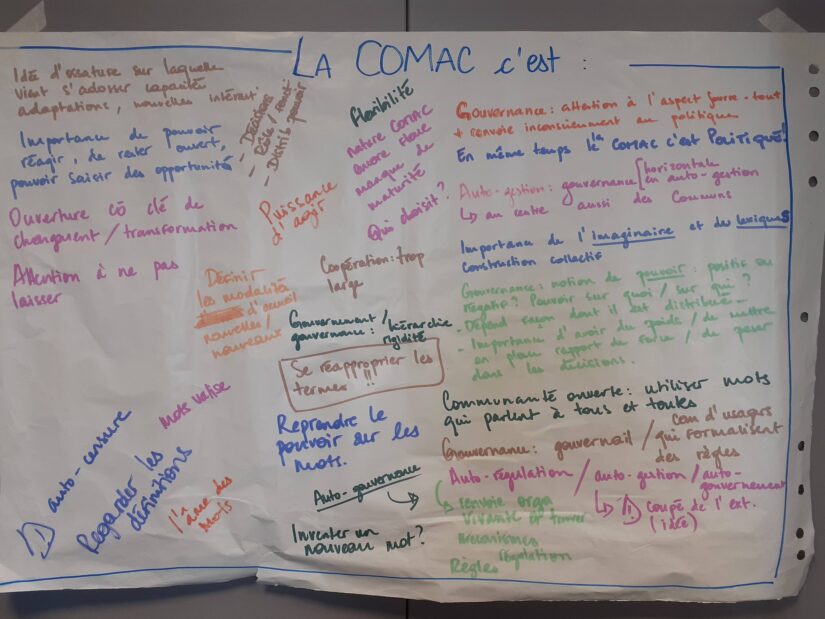 LA COMAC c'est :
Idée d'ossature sur laquelle
vient s'adosser capacités
adaptations, nouvelles
Importance de pouvoir
réagir, de rester ouvert,
pouvoir saisir des opportunités
Ouverture cô clé de
changement / transformation
Attention à ne pas
laisser
- Décisions
- Rôle / Fonct°
- Distrib pouvoir
Puissance
d'agir
Définir
les modalités
d'accueil
nouvelles /
nouveaux
mots valise
auto-censure
Regarder les
définitions
l'âme des
mots
Flexibilité
nature COMAC
encore floue
manque de
maturité
Qui choisit ?
Coopération : trop
large
Gouvernement /
gouvernance : hiérarchie
rigidité
Se réapproprier les
termes !!!
Reprendre le
pouvoir sur les
mots.
Auto-gouvernance
Inventer un
nouveau mot ?
Gouvernance : attention à l'aspect fourre-tout
+ renvoie inconsciemment au politique
En même temps la COMAC c'est POLITIQUE !
Auto-gestion : gouvernance horizontale
en auto-gestion
↳ au centre aussi des Communs
Importance de l'imaginaire et des lexiques
construction collectif
Gouvernance : notion de pouvoir : positif ou
négatif ? Pouvoir sur quoi / sur qui ?
- Dépend façon dont il est distribué
- Importance d'avoir du poids / de mettre
en place rapport de force / de peser
dans les décisions.
Communauté ouverte : utiliser mots
qui parlent à tous et toutes
Gouvernance : gouvernail / com d'usagers
qui formalisent
des règles
Auto-régulation / auto-gestion / auto-
gouvernement
renvoie orga
vivante et
mécanismes
régulation
Règles
↳ coupé de l'ext.
(idée)